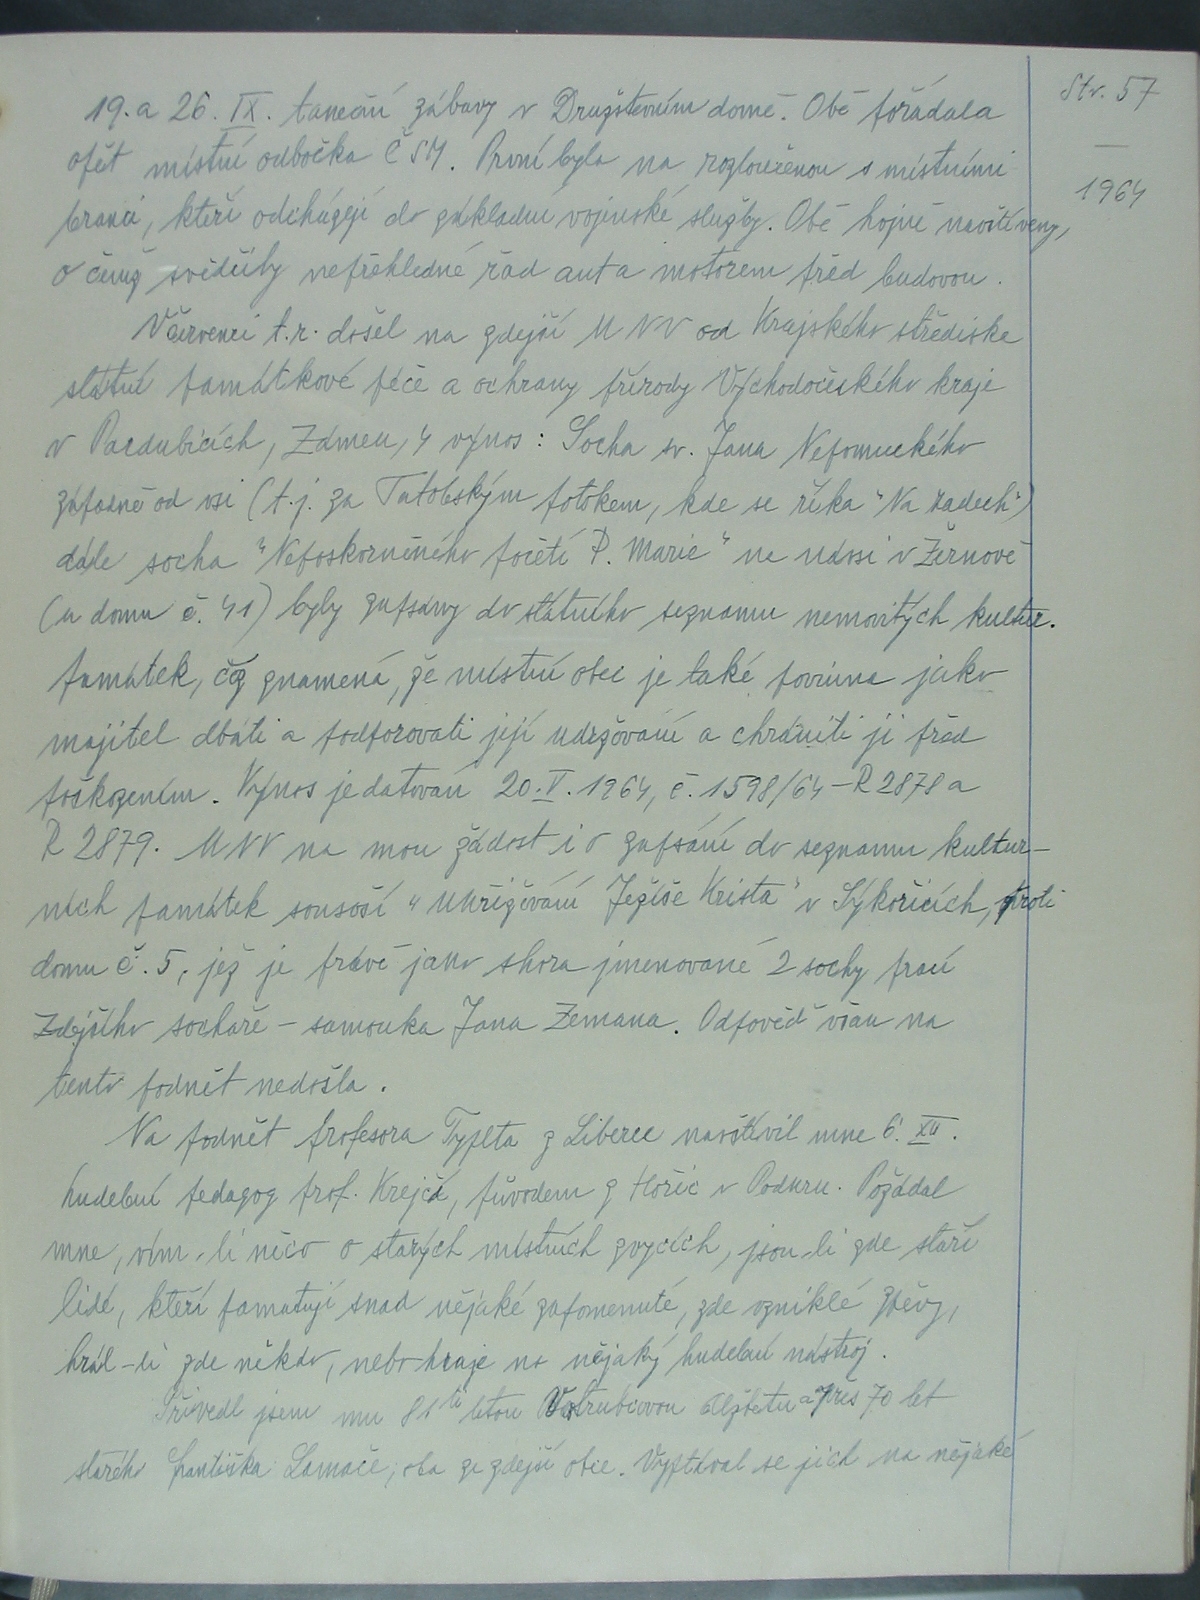 Str. 57
—
1964
19. a 26. IX. taneční zábavy v Družstevním domě. Obě pořádala
opět místní odbočka ČSM. První byla na rozloučenou s místními
branci, kteří odcházejí do základní vojenské služby. Obě hojně navštíveny,
o čemž svědčily nepřehledné řad aut a motorem před budovou.
V červenci t.r. došel na zdejší MNV od Krajského střediska
státní památkové péče a ochrany přírody Východočeského kraje
v Pardubicích, Zámek, 4 výnos: Socha sv. Jana Nepomuckého
západně od vsi (t.j. za Tatobským potokem, kde se říká "Na sadech")
dále socha "Neposkvrněného početí P. Marie" na návsi v Žernově
(u domu č. 41) byly zapsány do státního seznamu nemovitých kultur.
památek, což znamená, že místní obec je také povinna jako
majitel dbáti a podporovati její udržování a chrániti ji před
poškozením. Výnos je datován 20.V. 1964, č. 1598/64 – R 2878 a
R 2879. MNV na mou žádost i o zapsání do seznamu kultur-
ních památek sousoší "Ukřižování Ježíše Krista" v Sýkořicích, proti
domu č. 5, jež je právě jako shora jmenované 2 sochy prací
zdejšího sochaře – samouka Jana Zemana. Odpověď však na
tento podnět nedošla.
Na podnět profesora Typlta z Liberce navštívil mne 6. XII.
hudební pedagog prof. Krejčí, původem z Hořic v Podkrk. Požádal
mne, vím-li něco o starých místních zvycích, jsou-li zde staří
lidé, kteří pamatují snad nějaké zapomenuté, zde vzniklé zpěvy,
hrál-li zde někdo, nebo hraje na nějaký hudební nástroj.
Přivedl jsem mu 81ti letou Votrubcovou Alžbětu a přes 70 let
starého Františka Lamače, oba ze zdejší obce. Vyptával se jich na nějaké